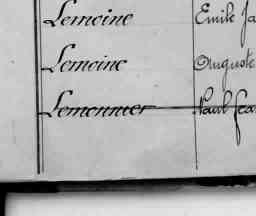 Lemoine Emile Ja
Lemoine Auguste
Lemonnier Paul Jea